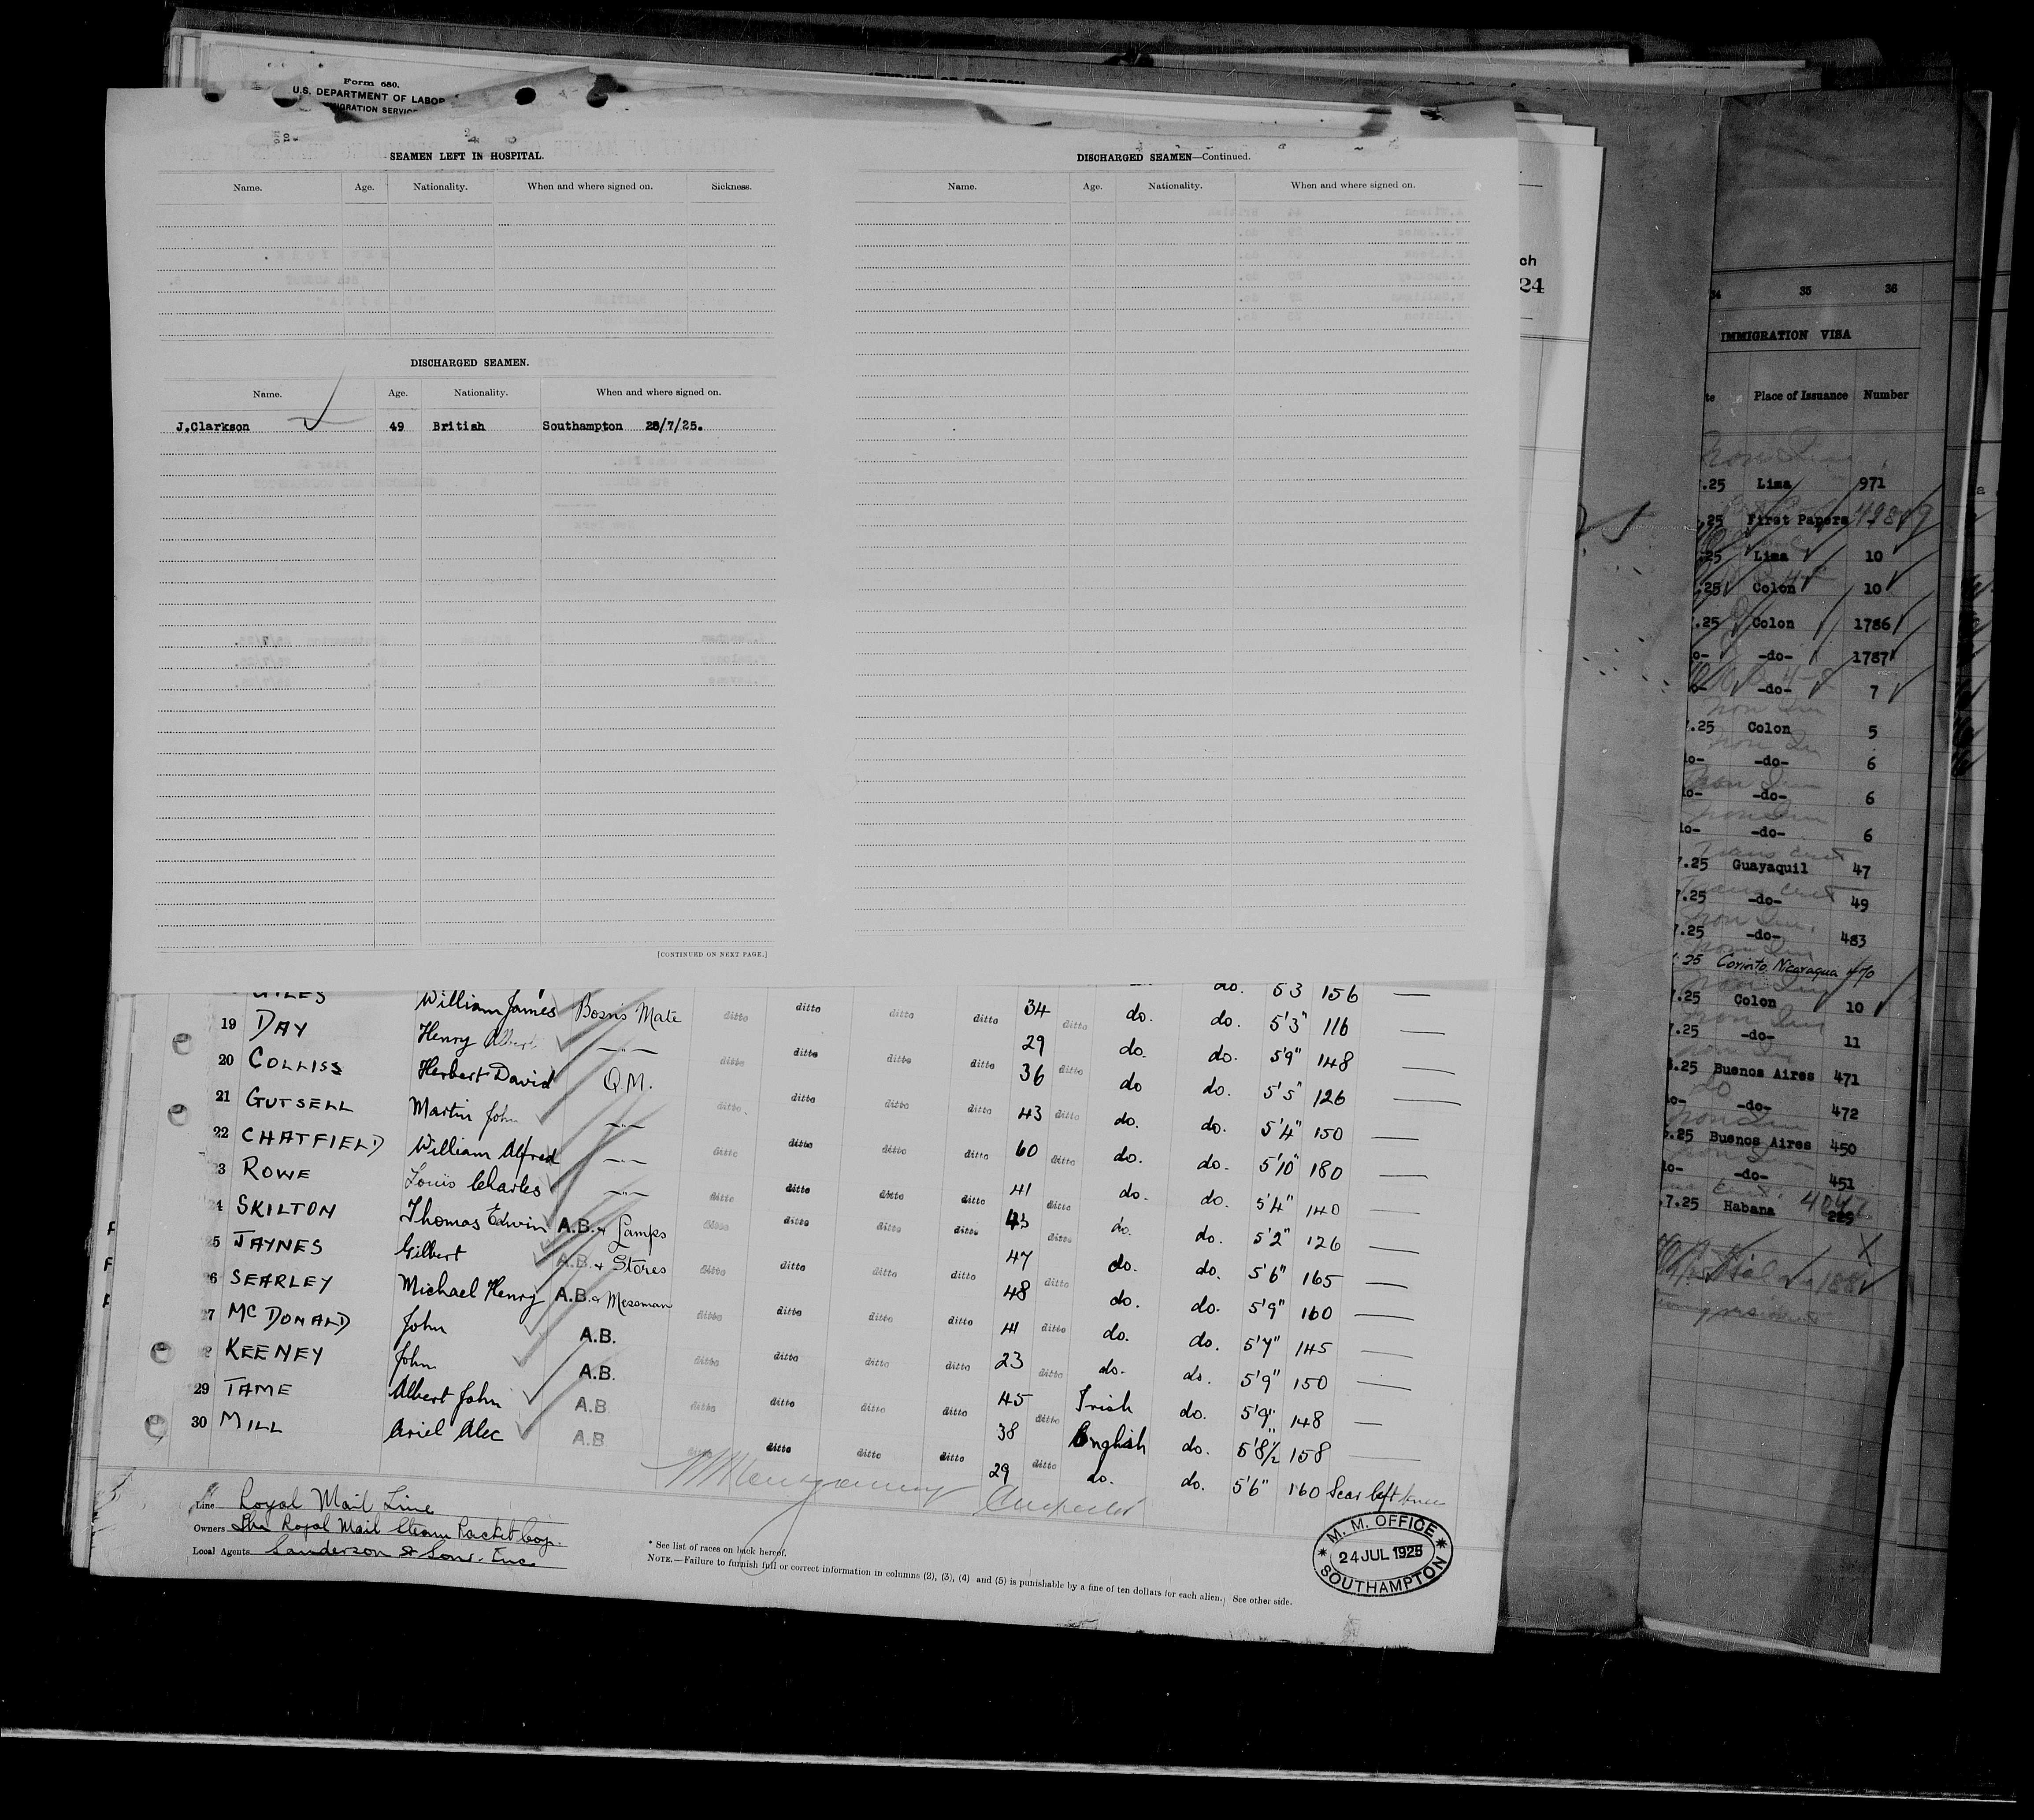 Form 680.
U.S. DEPARTMENT OF LABOR
IGRATION SERVIC
SEAMEN LEFT IN HOSPITAL.
Name. Age. Nationality. When and where signed on. Sickness.
DISCHARGED SEAMEN.
Name. Age. Nationality. When and where signed on.
J.Clarkson 49 British Southampton 25/7/25.
[CONTINUED ON NEXT PAGE.]
DISCHARGED SEAMEN—Continued.
Name. Age. Nationality. When and where signed on.
William James Bosn's Mate ditto ditto ditto ditto 34 ditto do. do. 5'3" 116 —
19 DAY Henry Albert —"— ditto ditto ditto ditto 29 ditto do. do. 5'9" 148 —
20 COLLISS Herbert David Q.M. ditto ditto ditto ditto 36 ditto do do. 5'5" 126 —
21 GUTSELL Martin John —"— ditto ditto ditto ditto 43 ditto do. do. 5'4" 150 —
22 CHATFIELD William Alfred —"— ditto ditto ditto ditto 60 ditto do. do. 5'10" 180 —
23 ROWE Louis Charles —"— ditto ditto ditto ditto 41 ditto do. do. 5'4" 140 —
24 SKILTON Thomas Edwin A.B. & Lamps ditto ditto ditto ditto 43 ditto do. do. 5'2" 126 —
25 JAYNES Gilbert A.B. & Stores ditto ditto ditto ditto 47 ditto do. do. 5'6" 165 —
26 SEARLEY Michael Henry A.B. & Messman ditto ditto ditto ditto 48 ditto do. do. 5'9" 160 —
27 McDONALD John A.B. ditto ditto ditto ditto 41 ditto do. do. 5'7" 145 —
KEENEY John A.B. ditto ditto ditto ditto 23 ditto do. do. 5'9" 150 —
29 TAME Albert John A.B. ditto ditto ditto ditto 45 ditto Irish do. 5'9" 148 —
30 MILL Ariel Alec A.B ditto ditto ditto ditto 38 ditto English do. 5'8½ 158 —
29 do. do. 5'6" 160 Scar left knee
Line Royal Mail Line
Owners The Royal Mail Steam Packet Coy.
Local Agents Sanderson & Son. Inc.
* See list of races on back hereof.
NOTE.—Failure to furnish full or correct information in columns (2), (3), (4) and (5) is punishable by a fine of ten dollars for each alien. See other side.
M. M. OFFICE
24 JUL 1925
SOUTHAMPTON
ch
24
34 35 36
IMMIGRATION VISA
te Place of Issuance Number
.25 Lima 971
.25 First Papers
.25 Lima 10
.25 Colon 10
.25 Colon 1786
o- -do- 1787
o- -do- 7
7.25 Colon 5
do- -do- 6
do- -do- 6
do- -do- 6
7.25 Guayaquil 47
7.25 -do- 49
7.25 -do- 483
.25 Corinto. Nicaragua 470
7.25 Colon 10
7.25 -do- 11
6.25 Buenos Aires 471
o- -do- 472
6.25 Buenos Aires 450
do- -do- 451
.7.25 Habana 225